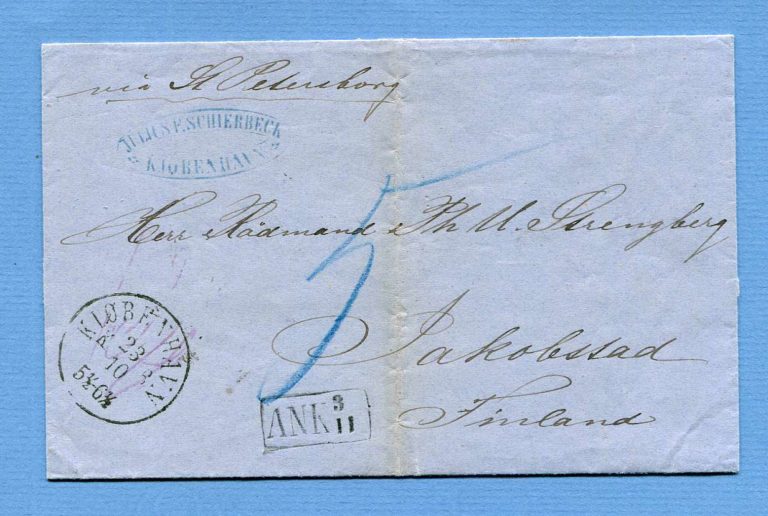 via St Petersborg
JULIUS F. SCHIERBECK
KJØBENHAVN
5
Herr Rådmand Ph U. Strengberg
Jakobstad
Finland
KIØBENHAVN
23
10
5½-6½
ANK 3/11